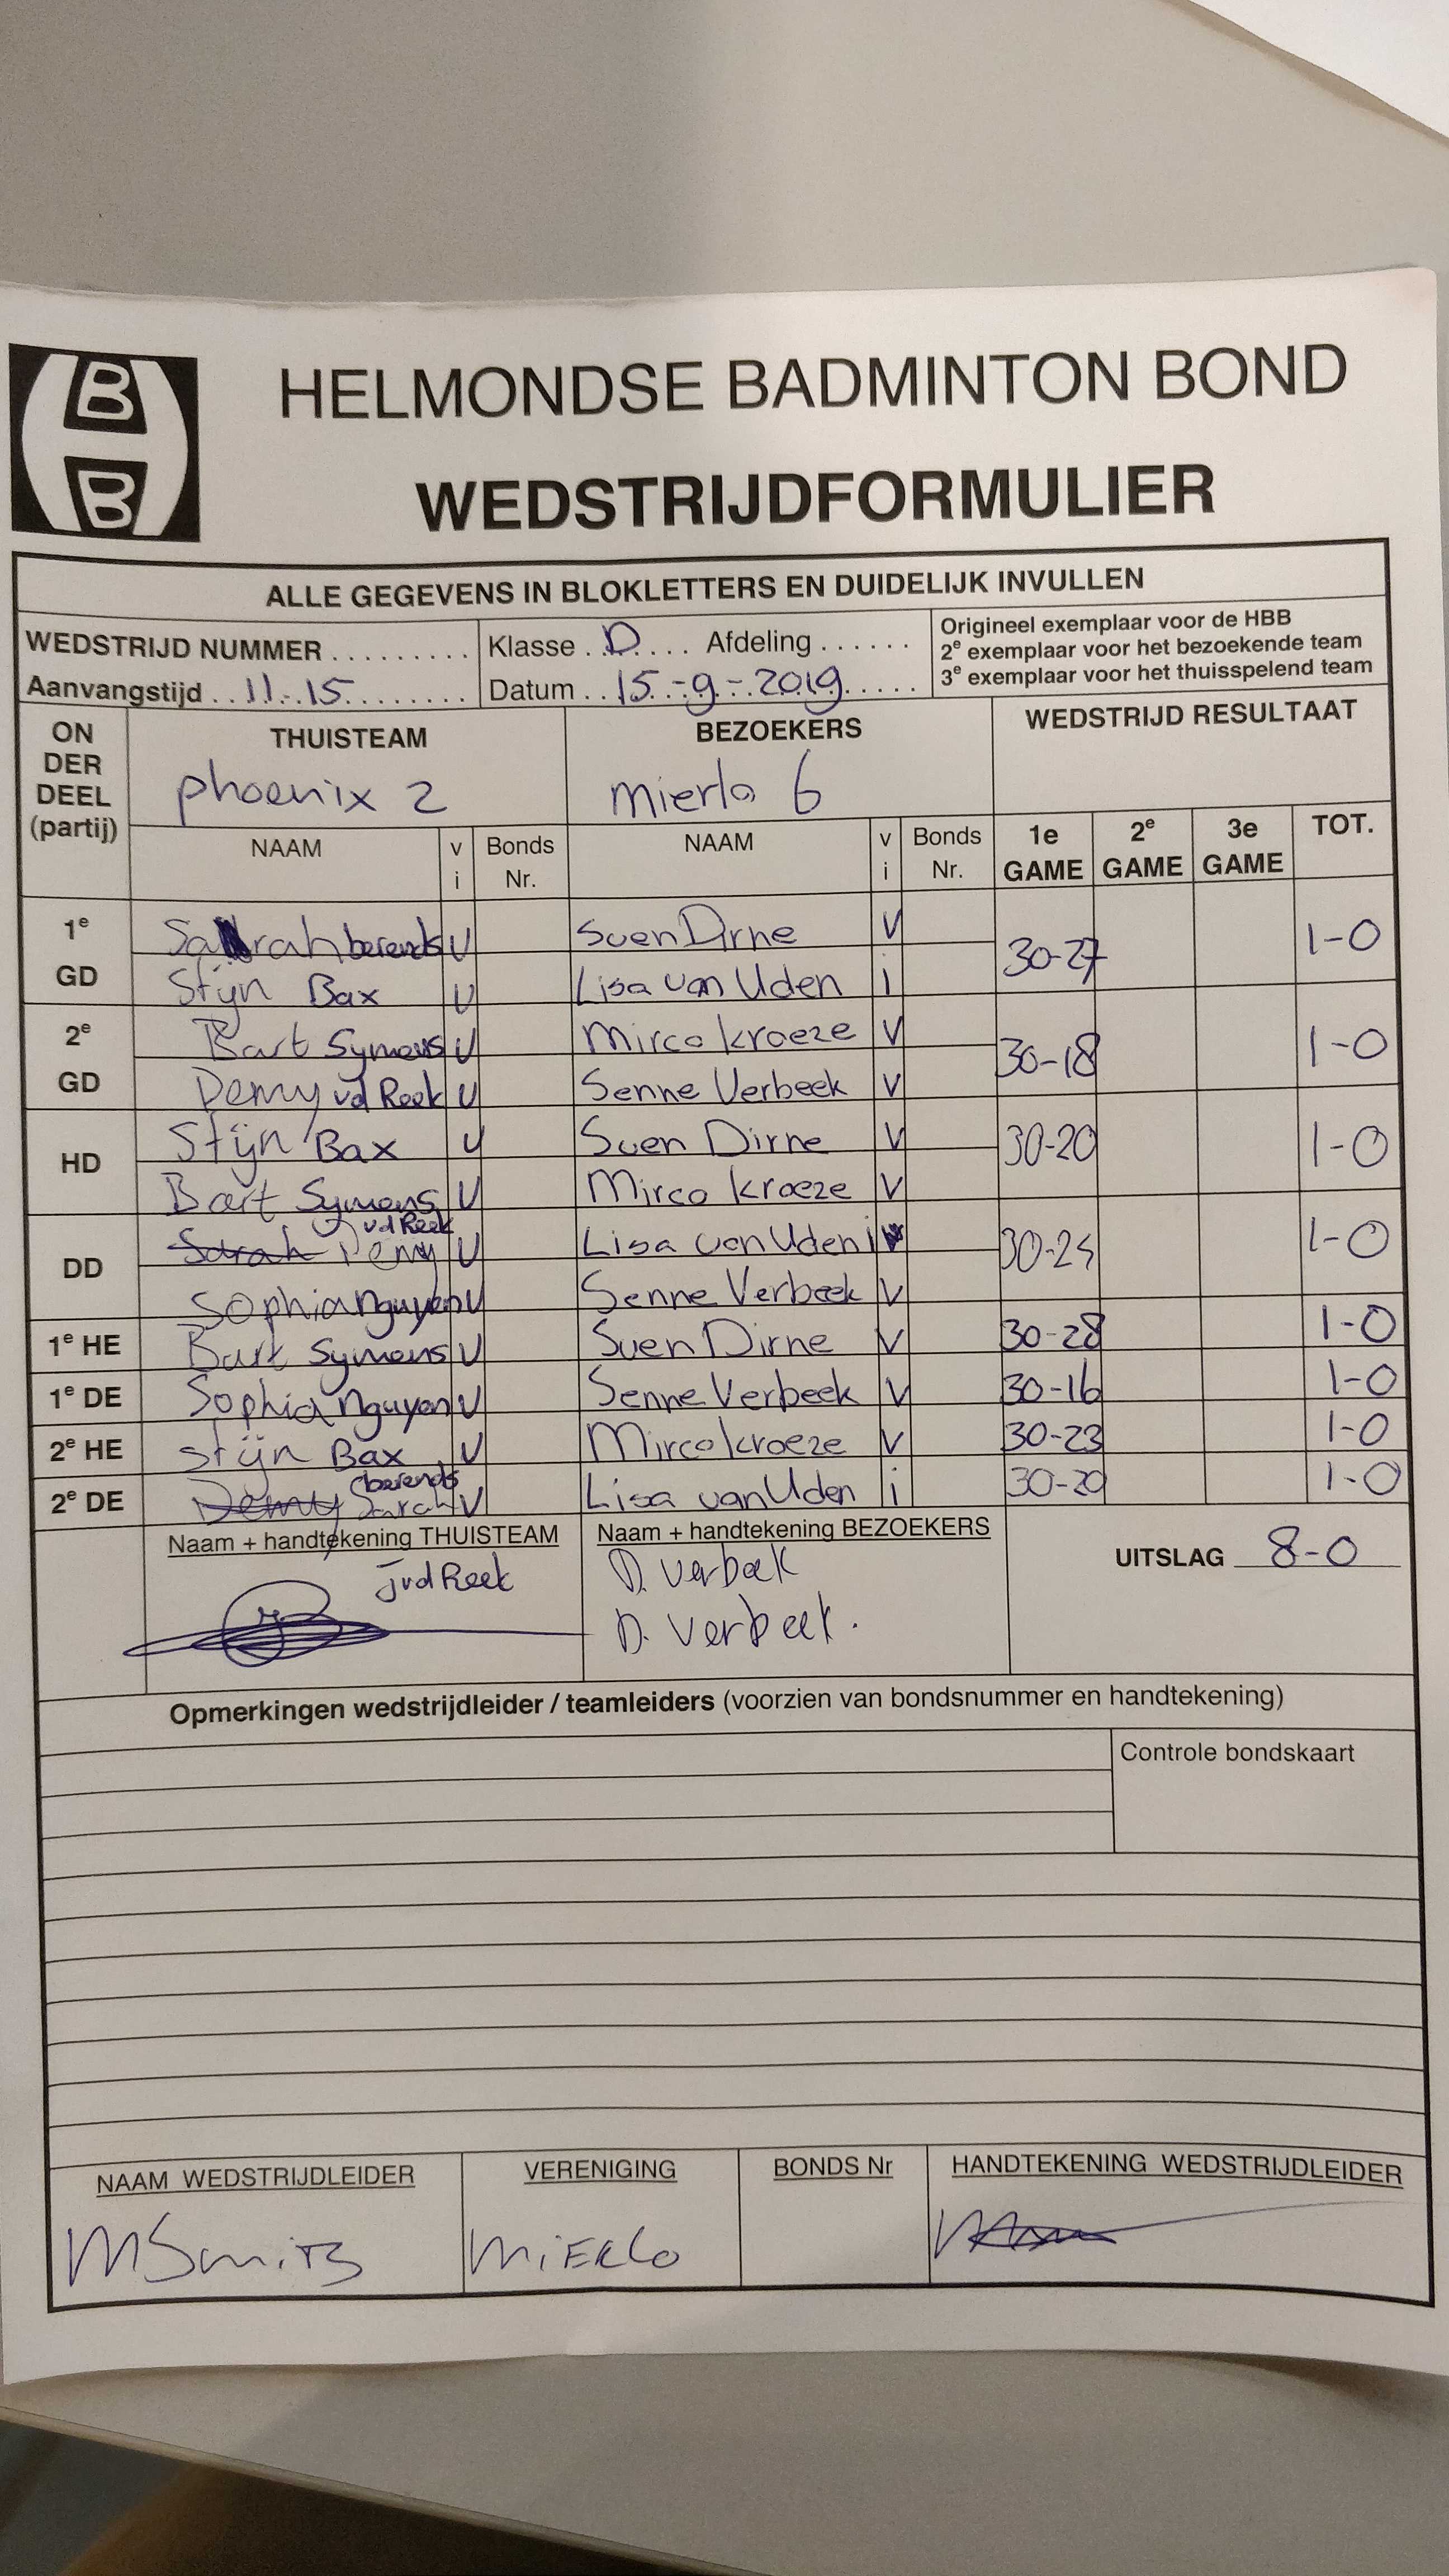 B
B
HELMONDSE BADMINTON BOND
WEDSTRIJDFORMULIER
ALLE GEGEVENS IN BLOKLETTERS EN DUIDELIJK INVULLEN
WEDSTRIJD NUMMER ......... Klasse . D .... Afdeling ......
Origineel exemplaar voor de HBB
2e exemplaar voor het bezoekende team
3e exemplaar voor het thuisspelend team
Aanvangstijd .. 11.15 ........ Datum .. 15-9-2019 .....
ON DER DEEL (partij)
THUISTEAM BEZOEKERS WEDSTRIJD RESULTAAT
phoenix 2 mierlo 6
NAAM v i Bonds Nr. NAAM v i Bonds Nr. 1e GAME 2e GAME 3e GAME TOT.
1e GD Sarah berends V Sven Dirne V 30-27 1-0
Stijn Bax V Lisa van Uden i
2e GD Bart Symons V Mirco kroeze V 30-18 1-0
Demy vd Reek V Senne Verbeek V
HD Stijn Bax V Sven Dirne V 30-20 1-0
Bart Symons V Mirco kroeze V
DD Sarah Demy vd Reek V Lisa van Uden i 30-25 1-0
Sophia Nguyen V Senne Verbeek V
1e HE Bart Symons V Sven Dirne V 30-28 1-0
1e DE Sophia Nguyen V Senne Verbeek V 30-16 1-0
2e HE Stijn Bax V Mirco kroeze V 30-23 1-0
2e DE Demy Sarah berends V Lisa van Uden i 30-20 1-0
Naam + handtekening THUISTEAM Naam + handtekening BEZOEKERS UITSLAG 8-0
JvdReek D. verbeek
D. Verbeek.
Opmerkingen wedstrijdleider / teamleiders (voorzien van bondsnummer en handtekening)
Controle bondskaart
NAAM WEDSTRIJDLEIDER VERENIGING BONDS Nr HANDTEKENING WEDSTRIJDLEIDER
M Smits MiERLo